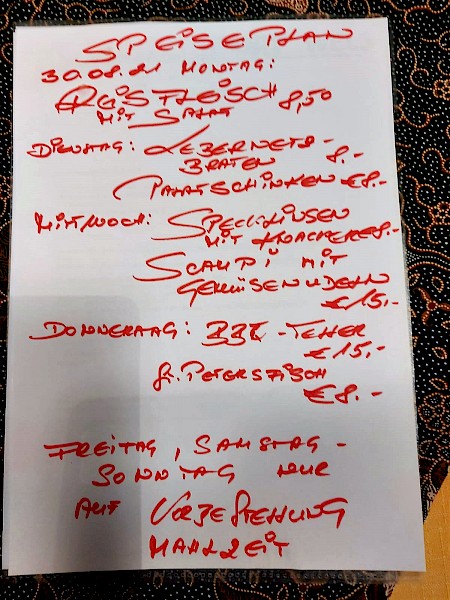 SPEiSEPLAN
30.08.21 MONTAG:
REiSFLEiSCH 8,50
MiT SALAT
DiENSTAG: LEBERNETZ-
BRATEN 8.-
PALATSCHiNKEN €8.-
MiTTWOCH: SPECKLiNSEN
MiT KNACKERE8.-
SCAMPi MiT
GEMÜSENUDELN
€15,-
DONNERSAG: BBQ-TELLER
€15,-
St. PETERSFiSCH
€8.-
FREiTAG, SAMSTAG-
SONNTAG NUR
AUF VORBESTELLUNG
MAHLZEiT